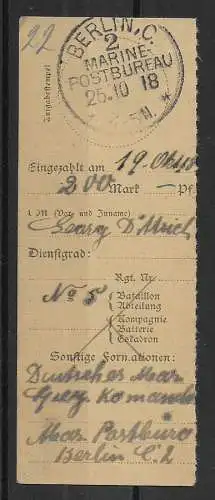 22
BERLIN.C.
2
MARINE-
POSTBUREAU
25.10 18
Ausgabestempel
Eingezahlt am 19. Okt. 18
200 Mark — Pf.
(Vor= und Zuname)
Georg
Dienstgrad:
Rgt. Nr.
No 5
Bataillon
Abteilung
Kompagnie
Batterie
Eskadron
Sonstige Formationen:
Deutsches Mar.
Komando
Mar. Postbüro
Berlin C. 2